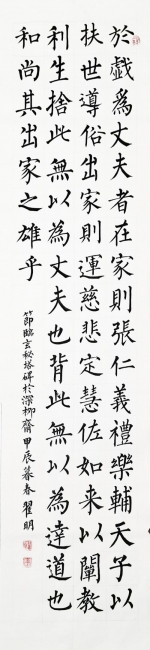 於戲為丈夫者在家則張仁義禮樂輔天子以
扶世導俗出家則運慈悲定慧佐如来以闡教
利生捨此無以為丈夫也背此無以為達道也
和尚其出家之雄乎
節臨玄秘塔碑於溪柳齋甲辰暮春翟明